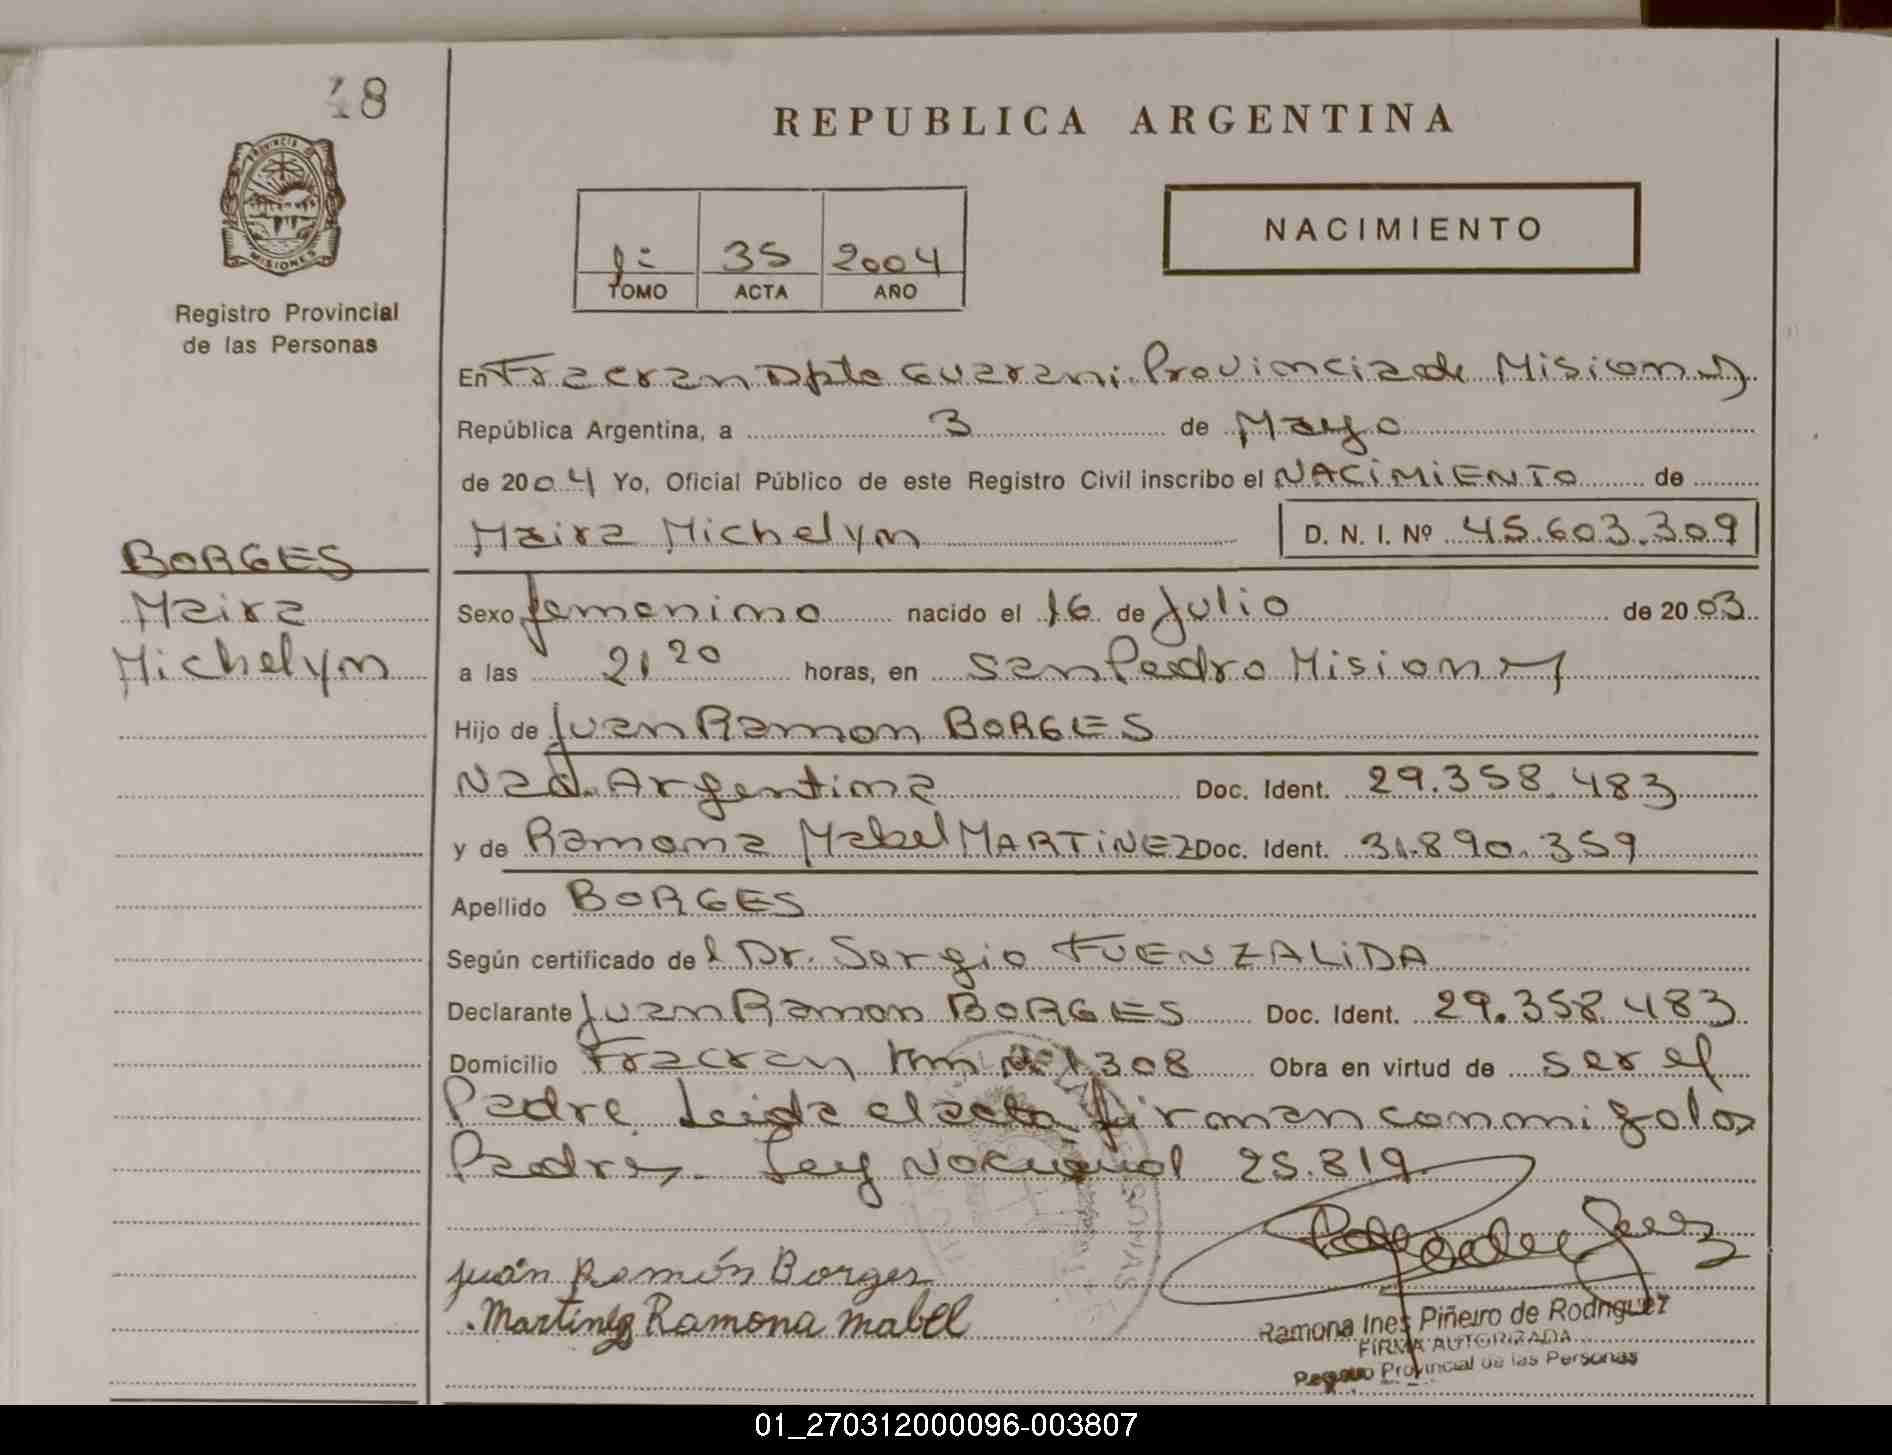 48
REPUBLICA ARGENTINA
PROVINCIA DE
MISIONES
Registro Provincial
de las Personas
1:
35
2004
TOMO
ACTA
AÑO
NACIMIENTO
En Fracran Dpto Guarani Provincia de Misiones
República Argentina, a 3 de Mayo
de 2004 Yo, Oficial Público de este Registro Civil inscribo el NACIMIENTO de
Maira Michelyn D. N. I. Nº 45.603.309
BORGES
Maira
Michelyn
Sexo femenino nacido el 16 de Julio de 2003
a las 21 20 horas, en San Pedro Misiones
Hijo de Juan Ramon BORGES
Nad. Argentina Doc. Ident. 29.358.483
y de Ramona Mabel MARTINEZ Doc. Ident. 31.890.359
Apellido BORGES
Según certificado del Dr. Sergio FUENZALIDA
Declarante Juan Ramon BORGES Doc. Ident. 29.358.483
Domicilio Fracran Km Nº 1308 Obra en virtud de ser el
Padre Leida el acta firman conmigo los
Padres. Ley Nacional 25.819.
Juán Ramón Borges
Martinez Ramona mabel
Ramona Ines Piñeiro de Rodriguez
FIRMA AUTORIZADA
Registro Provincial de las Personas
01_270312000096-003807